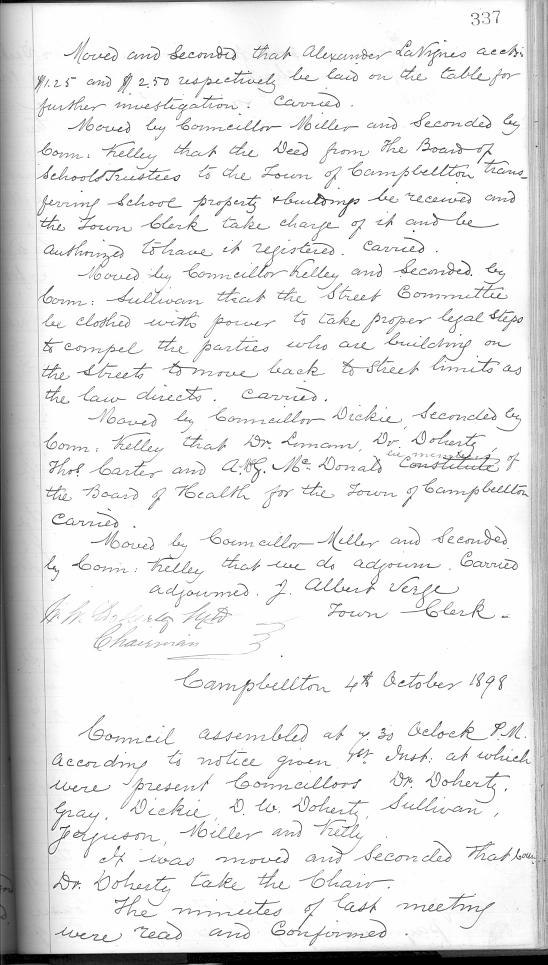 337
Moved and Seconded that Alexander LaVignes accts
$1.25 and $2.50 respectively be laid on the table for
further investigation. Carried.
Moved by Councillor Miller and Seconded by
Coun: Kelley that the Deed from the Board of
Schools Trustees to the Town of Campbellton trans-
ferring School property & buildings be received and
the Town Clerk take charge of it and be
authorized to have it registered. Carried.
Moved by Councillor Kelley and Seconded by
Coun: Sullivan that the Street Committee
be clothed with power to take proper legal Steps
to compel the parties who are building on
the Streets to move back to Street limits as
the law directs. Carried.
Moved by Councillor Dickie, Seconded by
Coun: Kelley that Dr. Lunam, Dr. Doherty
Thos Carter and A. McG. McDonald Constitute members of
the Board of Health for the Town of Campbellton
Carried.
Moved by Councillor Miller and Seconded
by Coun: Kelley that we do adjourn. Carried
adjourned. J. Albert Verge
Town Clerk -
Doherty MD
Chairman
Campbellton 4th October 1898
Council assembled at 7.30 Oclock P.M.
According to notice given Inst. at which
were present Councillors Dr. Doherty,
Gray, Dickie, D. W. Doherty, Sullivan,
Ferguson, Miller and Kelly
It was moved and Seconded that Coun
Dr. Doherty take the Chair.
The minutes of last meeting
were read and Confirmed.